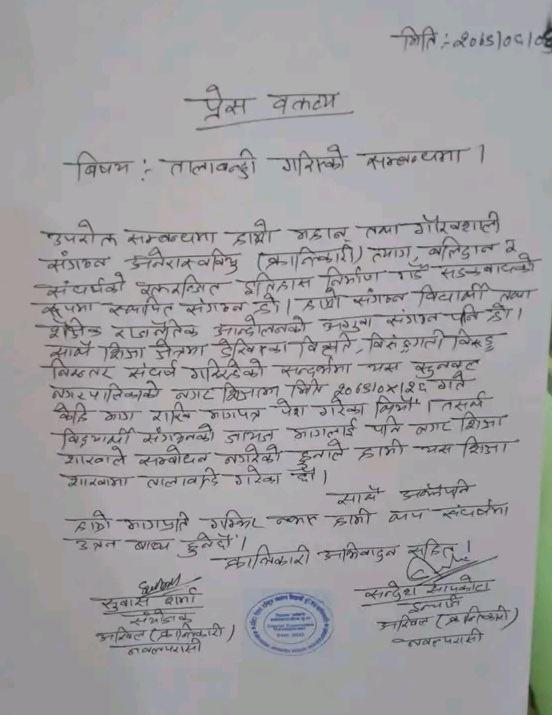 मिति :- २०७८।०८।०६
प्रेस वक्तव्य
बिषय :- तालाबन्दी गरिएको सम्बन्धमा ।
उपरोक्त सम्बन्धमा हाम्रो महान् तथा गौरवशाली
संगठन अनेरास्ववियु (क्रान्तिकारी) त्याग, बलिदान र
संघर्षको रक्तरन्जित इतिहास निर्माण गर्दै सडकबाटको
रूपमा स्थापित संगठन हो। हाम्रो संगठन विद्यार्थी तथा
शैक्षिक राजनीतिक आन्दोलनको अगुवा संगठन पनि हो।
साथै शिक्षा क्षेत्रमा देखिएका विकृति, विसंङ्गती विरुद्ध
निरन्तर संघर्ष गरिरहेको सन्दर्भमा यस
नगरपालिकाको नगर शिक्षामा मिति गते
केहि माग राखि मागपत्र पेश गरेका थियौं। तसर्थ
विद्यार्थी संगठनको जायज मागलाई पनि नगर शिक्षा
शाखाले सम्बोधन नगरेको हुनाले हामी यस शिक्षा
शाखामा तालाबन्दि गरेका छौं।
साथै अझैपनि
हाम्रो मागप्रति गम्भिर नभए हामी थप संघर्षमा
उत्रन बाध्य हुनेछौं।
क्रान्तिकारी अभिवादन सहित!
सुवास शर्मा
संयोजक
अखिल (क्रान्तिकारी)
नवलपरासी
सन्देश सापकोटा
इन्चार्ज
अखिल (क्रान्तिकारी)
नवलपरासी